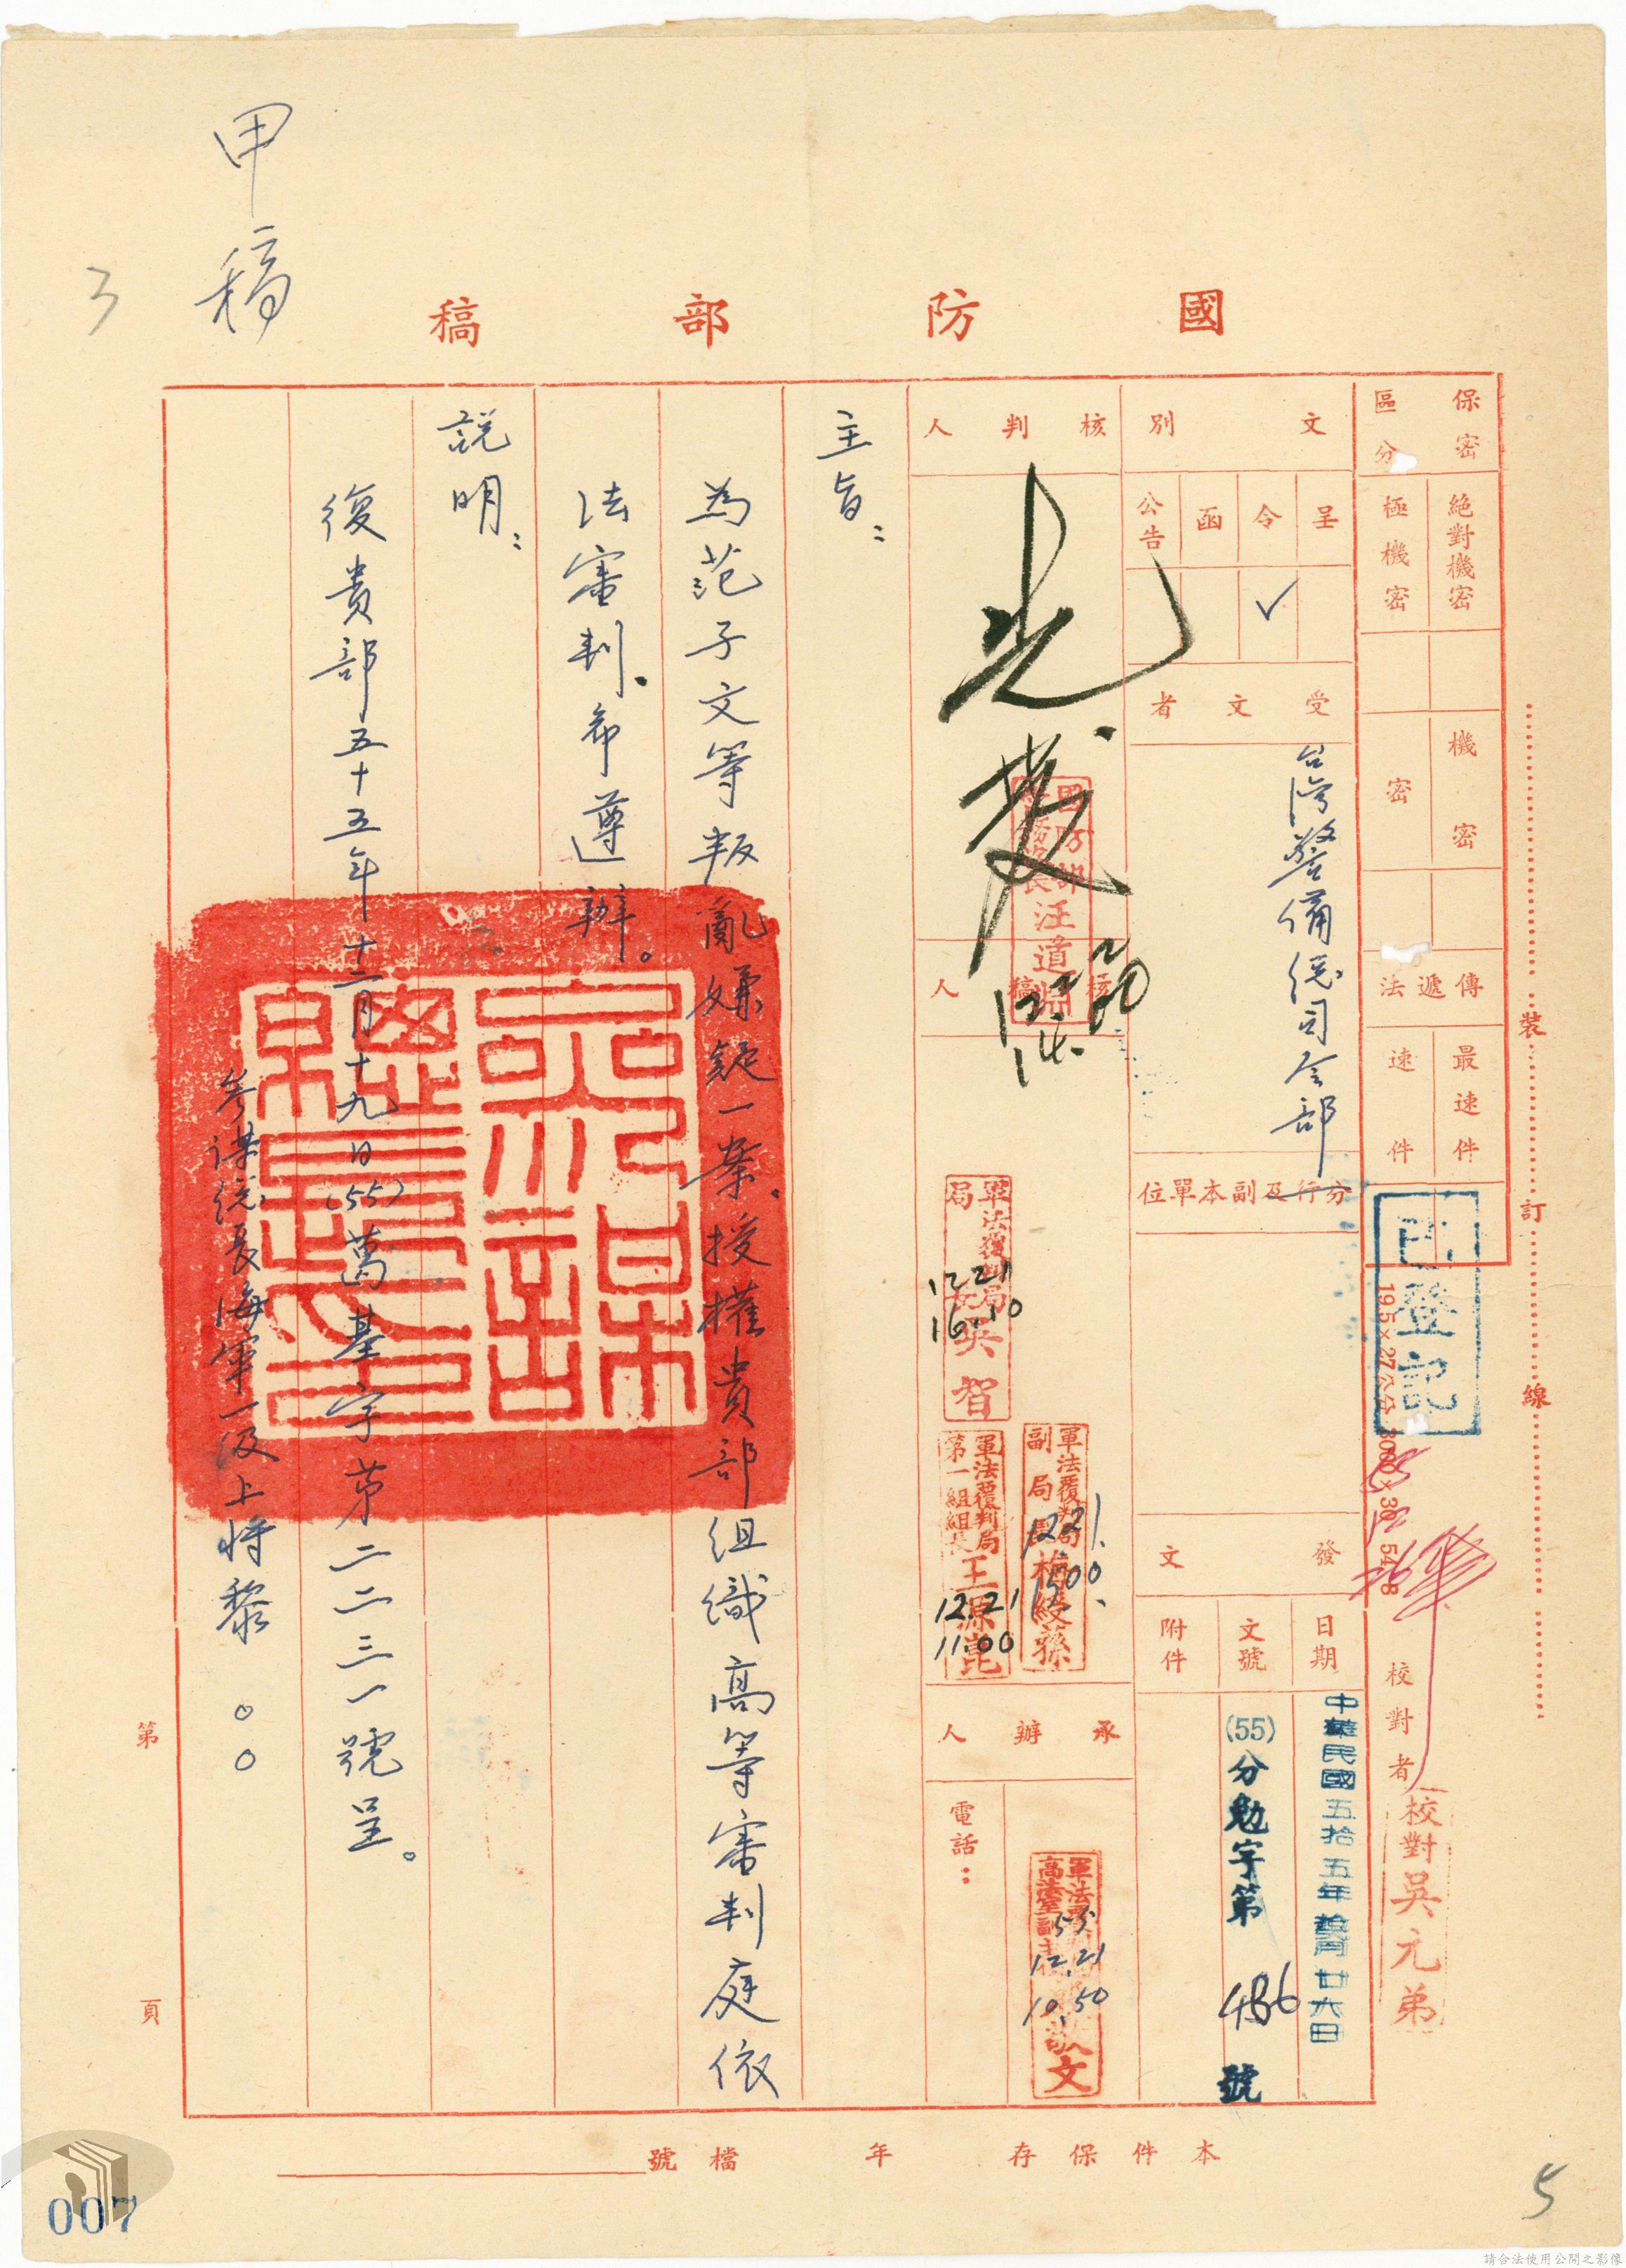 甲稿
3
國防部稿
保密區分
絕對機密
極機密
機密
密
傳遞法
最速件
速件
已登記
19.5×27公分
校對者
校對吳元弟
裝訂線
文別
呈
令
✓
函
公告
受文者
台灣警備總司令部
分行及副本單位
發文
日期
中華民國五拾五年
廿六日
文號
(55)分勉字第486號
附件
核判人
光
發
核稿人
汪道淵
12.20
14.
軍法覆判局局長吳智
12.21
16.10
軍法覆判局副局長梅綬蓀
12.21.
1500.
軍法覆判局第一組組長王源崑
12.21
11.00
承辦人
電話：
55.
12.21
10.50
文
主旨：
為范子文等叛亂嫌疑一案，授權貴部組織高等審判庭依
法審判，希遵辦。
說明：
復貴部五十五年十二月十九日(55)葛基字第二二三一號呈。
參謀總長海軍一級上將黎○○
參謀總長之印
第頁
本件保存年
檔號
007
5
請合法使用公開之影像